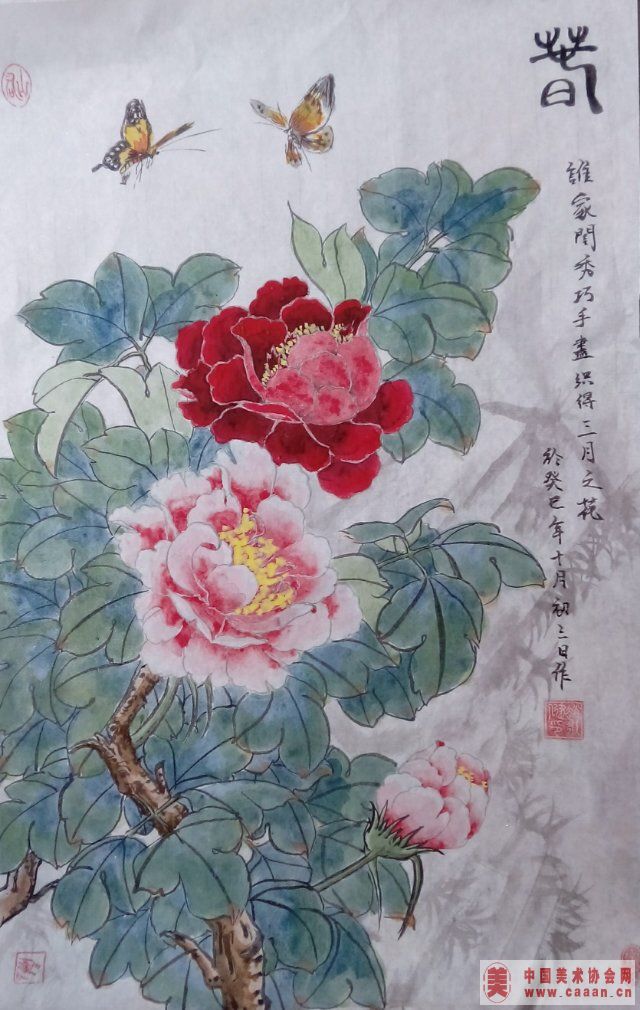 春
誰家閨秀巧手盡織得三月之花
於癸巳年十月初三日作
美 中国美术协会网
www.caaan.cn